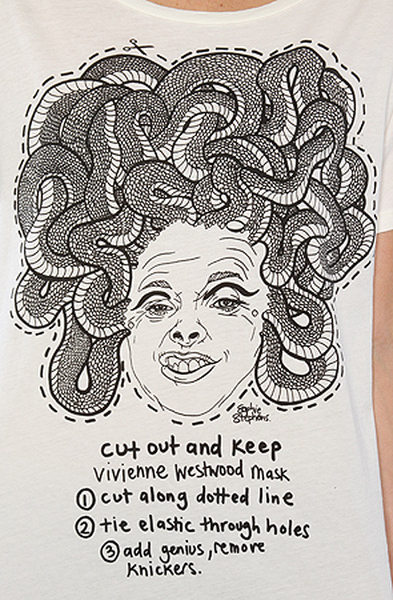 Sophie
Stephens.
cut out and keep
Vivienne Westwood mask
① cut along dotted line
② tie elastic through holes
③ add genius, remove
knickers.